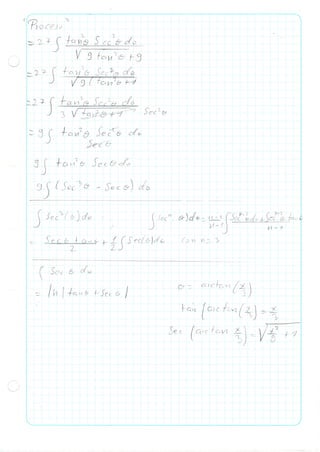 "Proceso"
= 27 ∫ tan²θ Sec²θ dθ / √(9 tan²θ + 9)
= 27 ∫ tan²θ Sec²θ dθ / √(9(tan²θ + 1
= 27 ∫ tan²θ Sec²θ dθ / 3√(tan²θ + 1) Sec²θ
= 9 ∫ tan²θ Sec²θ dθ / Sec θ
9 ∫ tan²θ Sec θ dθ
9 ∫ (Sec³θ - Sec θ) dθ
∫ Sec³(θ) dθ
= Sec θ tan θ / 2 + 1/2 ∫ Sec(θ) dθ con n = 3
∫ Sec θ dθ
= ln | tan θ + Sec θ |
θ = arctan (x/3)
tan (arctan (x/3)) = x/3
Sec (arctan x/3) = √(x²/9 + 1)